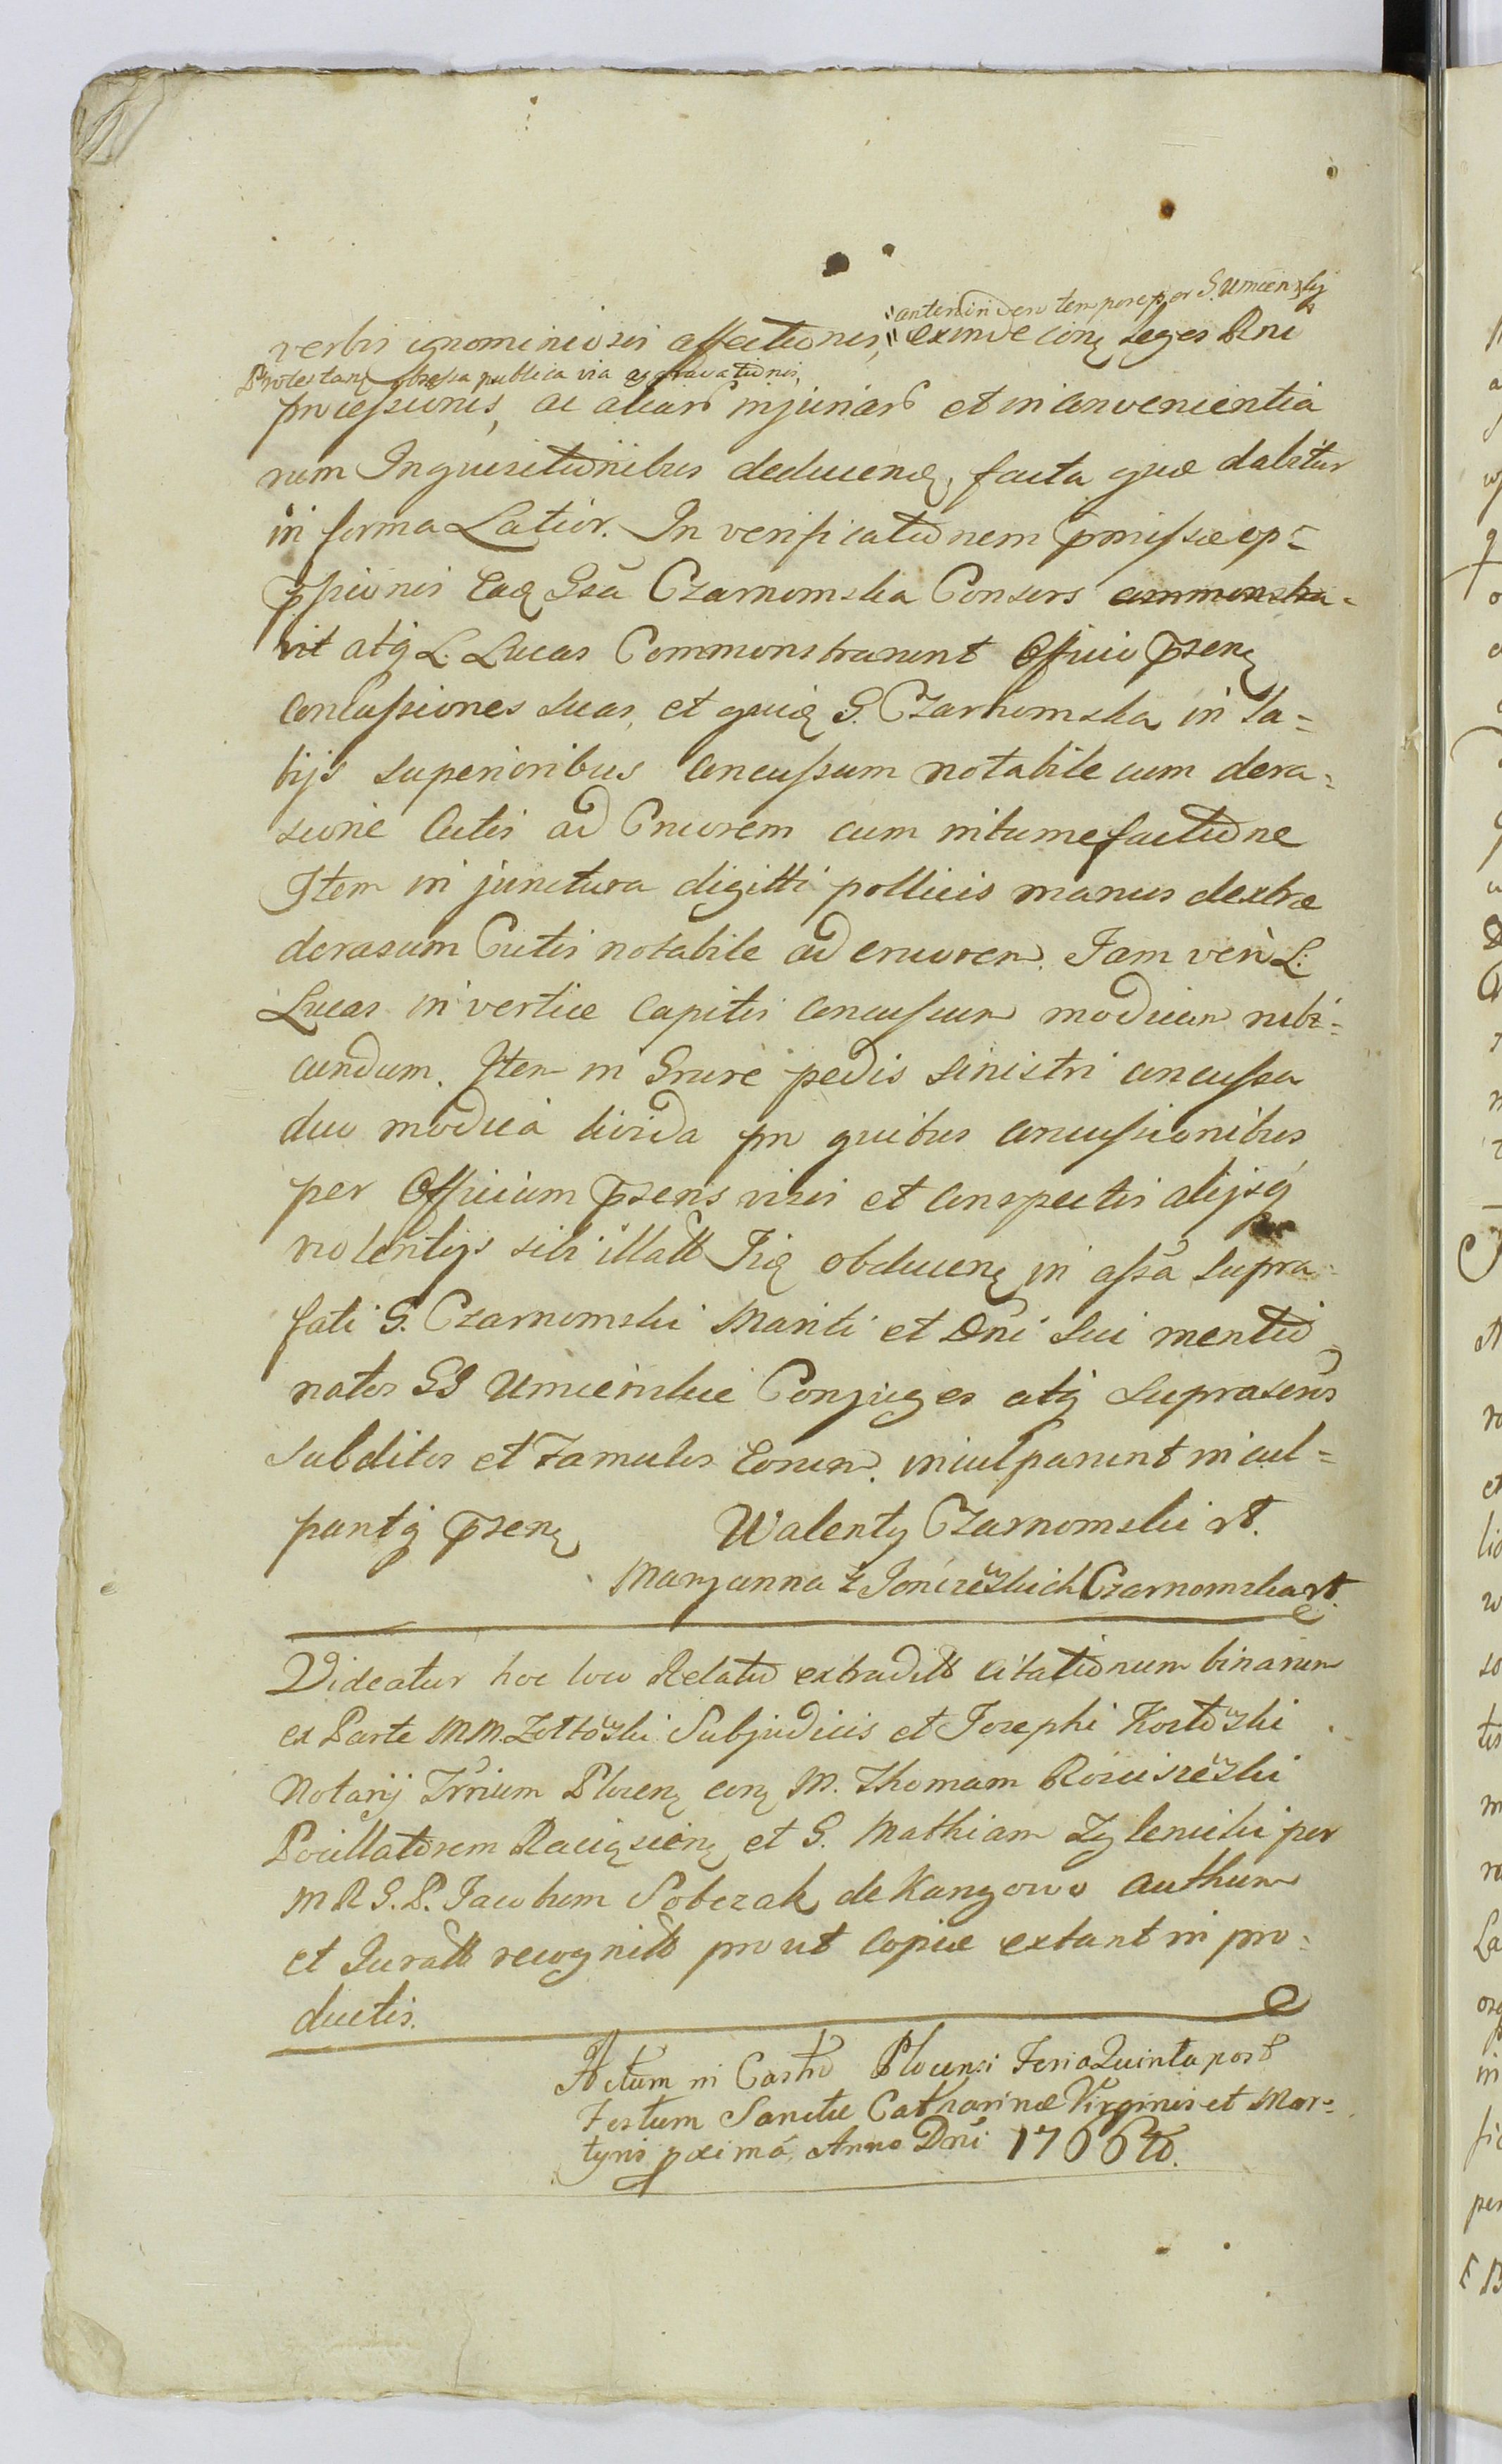 "anteriori den tempore per G. Umienskij
verbis ignominiosis affectionis, " exinde conę Leges Rni
Protestanę obsessa publica via aggravationis,
processionis, ac aliarū injuriarū et inconvenientia
rum Inquisitionibus deducenđ, facta quæ dabitur
in forma Latior. In verificationem p̄missæ op=
p̄ssionis Eadę Gsa Czarnomska Consors commonstra=
vit atq L. Lucas Commonstrarunt Officio p̄senę
Concussiones suas, et quidę G. Czarnomska in la=
bijs superioribus concussum notabile cum dera=
sione Cutis ad Cruorem cum intumefactione
Item in junctura digitti pollicis manus dextræ
derasum Cutis notabile ad cruorem. Jam verò L:
Lucas in vertice Capitis concussum modicum rubi=
cundum. Item in Crure pedis sinistri concussa
duo modica livida pro quibus concussionibus
per Officium p̄sens visis et conspectis alijsq
violentijs sibi illatt Jię obducenę in assa supra=
fati G. Czarnomski Mariti et Dni Sui mentio
natos GG Umienskie Conjuges atq suprascrīs
subditos et Famulos Eorum inculparunt incul=
pantq p̄senę Walenty Czarnomski rt.
Maryanna z Jonczeskich Czarnomska rt.
Videatur hoc loco Relatio extradītt citationum binarum
ex Parte MM. Zółtoski Subjudicis et Josephi Kostoski
Notarij Trrium Plocenę conę M. Thomam Rościszeski
Pocillatorem Raciąsienę et G. Mathiam Zylenski per
M R G. P. Jacobum Sobczak de Kanzowo authum
et Juratt recognitt prout copiæ extant in pro=
ductis.
Actum in Castro Plocensi Feria Quinta post
Festum Sanctæ Catharinæ Virginis et Mar=
tyris pximâ, Anno Dni 1766to.